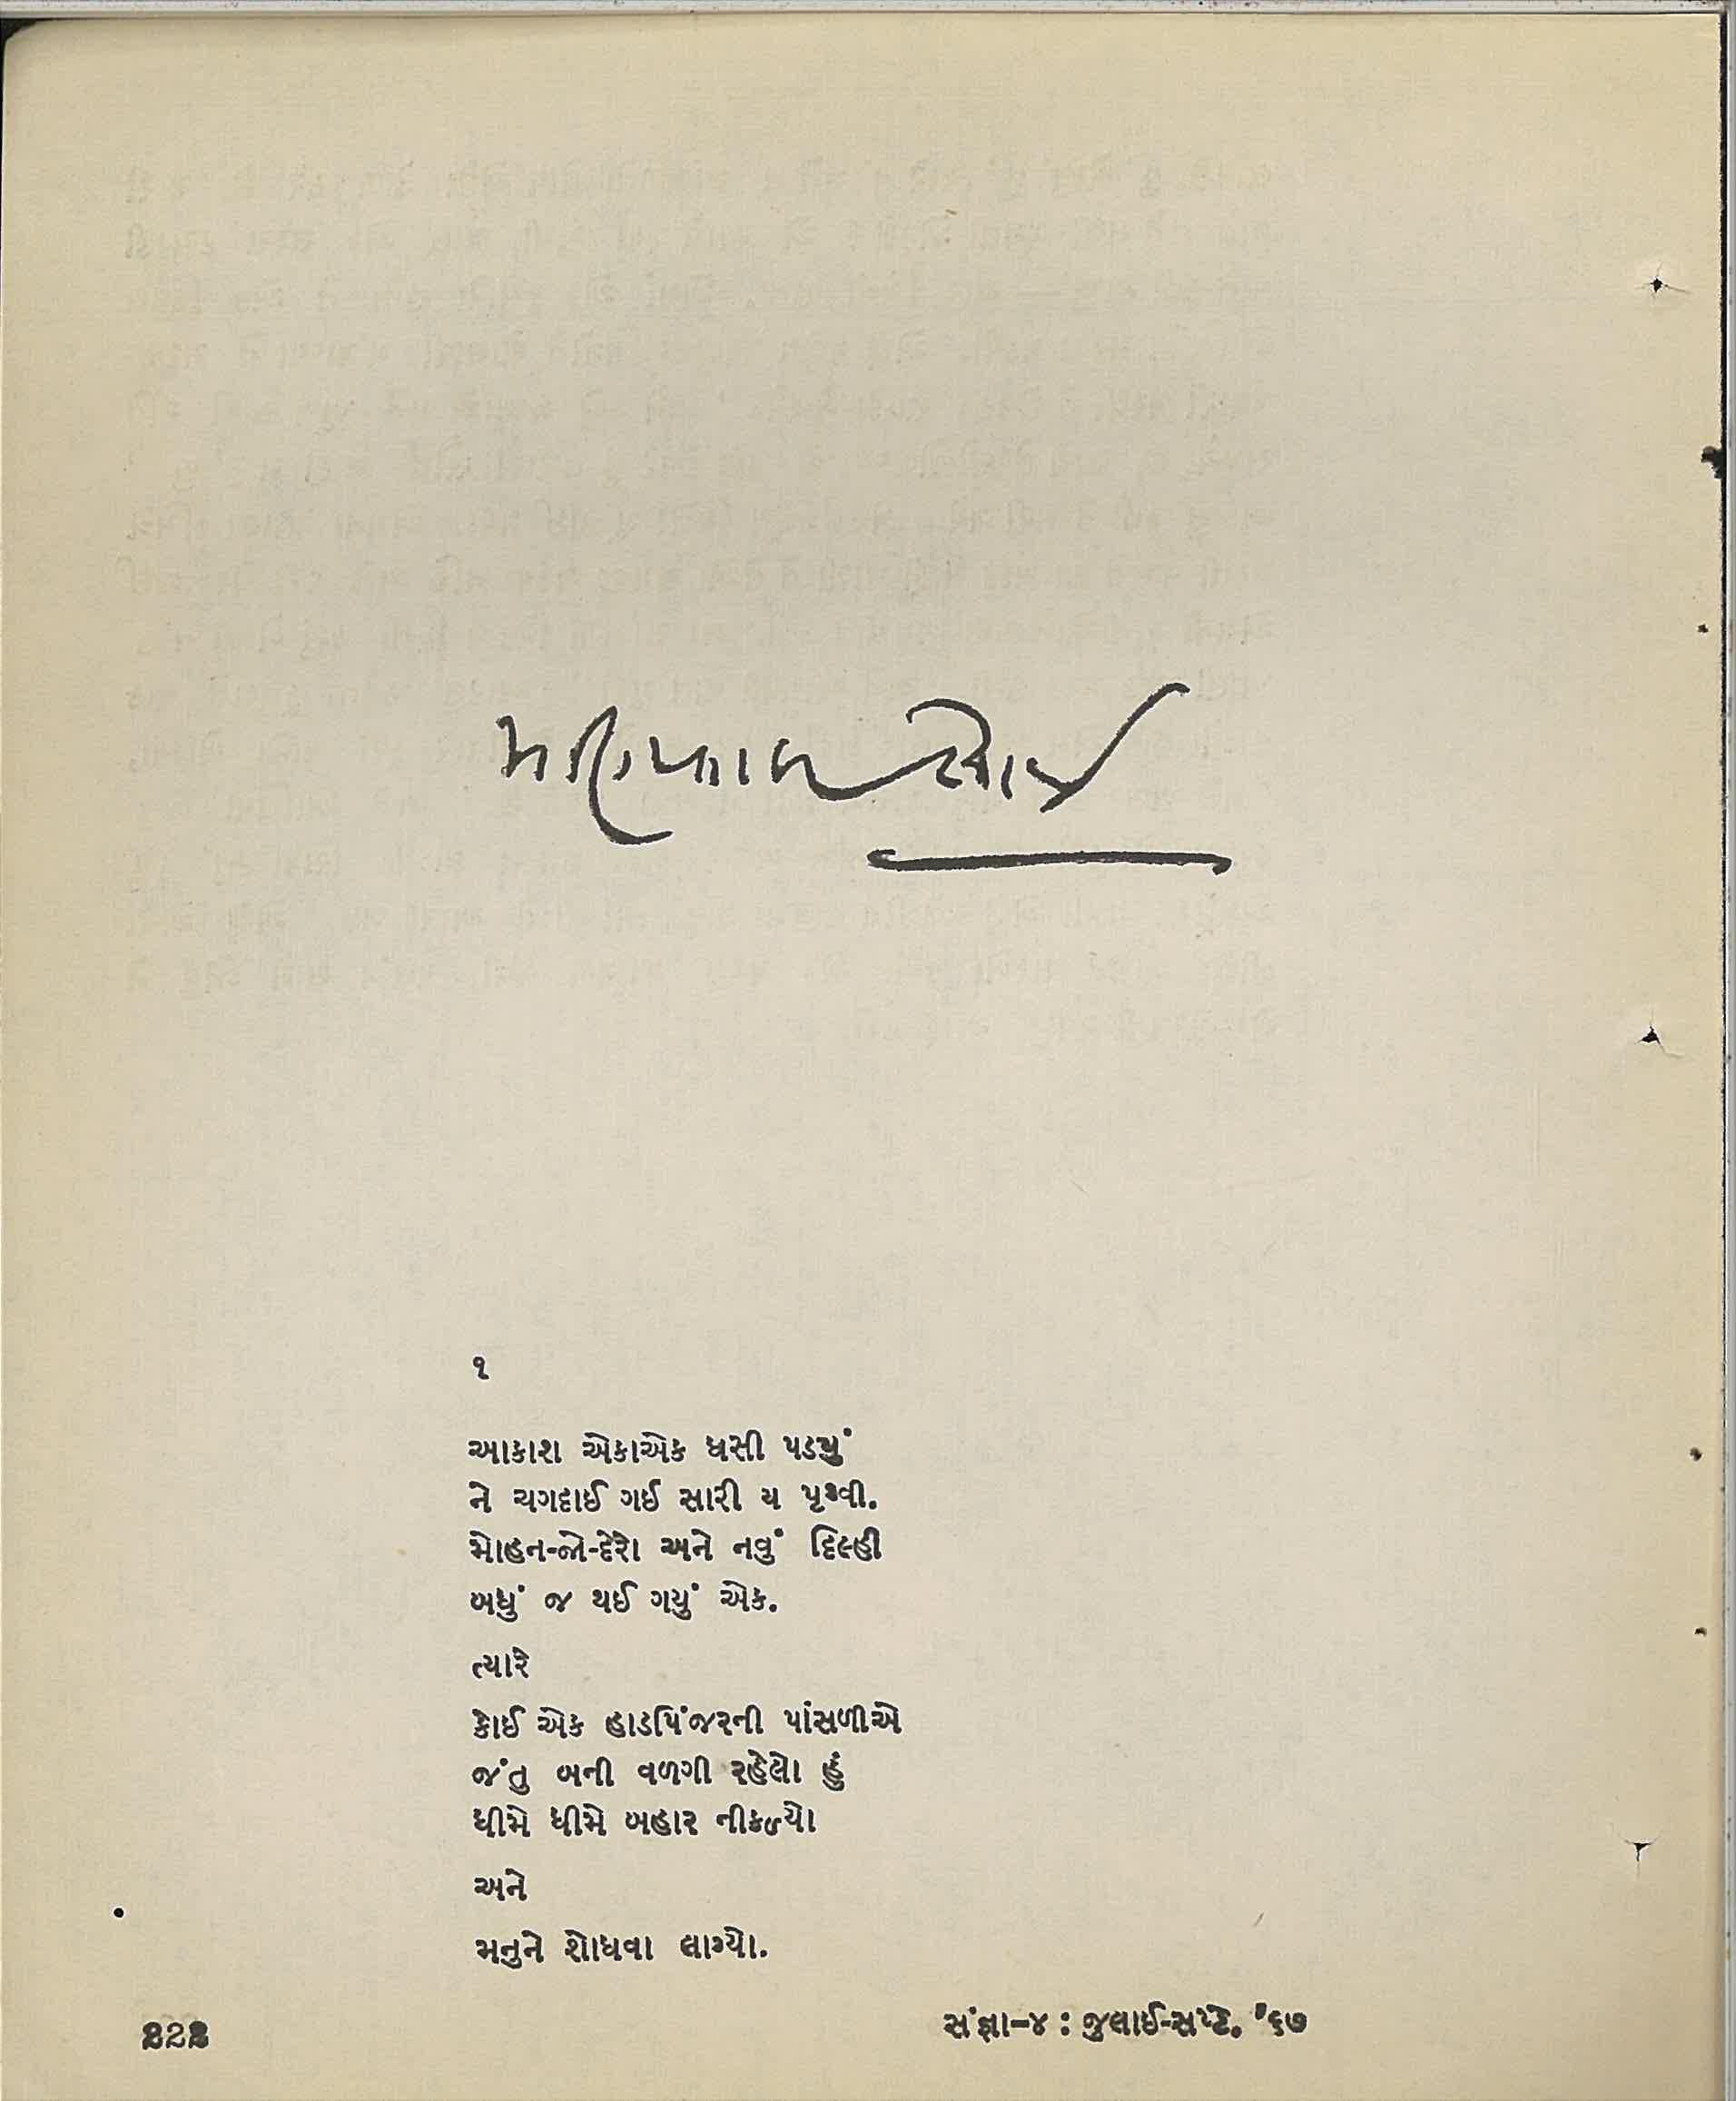 ૧
આકાશ એકાએક ધસી પડ્યું
ને ચગદાઈ ગઈ સારી ય પૃથ્વી.
મોહન-જો-દેરો અને નવું દિલ્હી
બધું જ થઈ ગયું એક.
ત્યારે
કોઈ એક હાડપિંજરની પાંસળીએ
જંતુ બની વળગી રહેલો હું
ધીમે ધીમે બહાર નીકળ્યો
અને
મનુને શોધવા લાગ્યો.
સંજ્ઞા-૪ : જુલાઈ-સપ્ટે. '૬૭